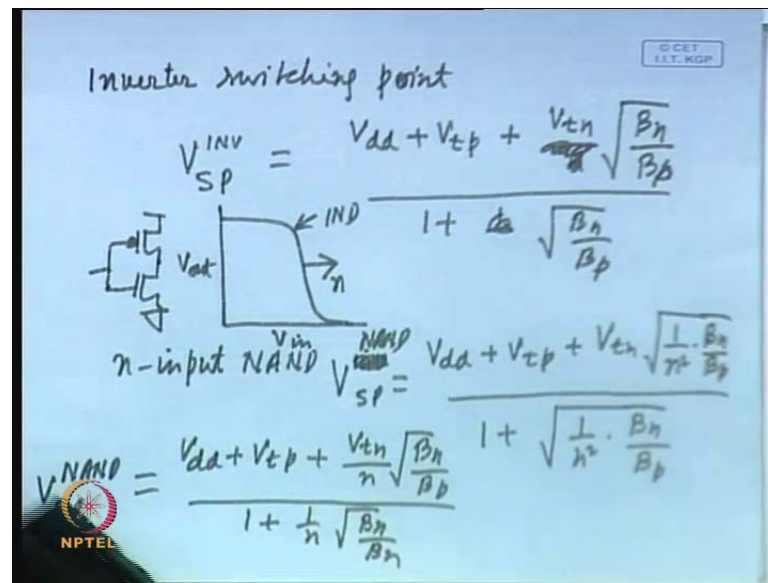 © CET
I.I.T. KGP
Inverter switching point
V_SP^INV = (Vdd + Vtp + Vtn √(βn/βp)) / (1 + √(βn/βp))
IND
Vout
n
Vin
n-input NAND V_SP^NAND = (Vdd + Vtp + Vtn √(1/n² · βn/βp)) / (1 + √(1/n² · βn/βp))
V^NAND = (Vdd + Vtp + Vtn/n √(βn/βp)) / (1 + 1/n √(βn/βn))
NPTEL